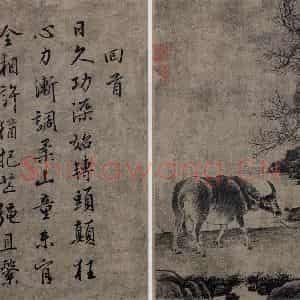 回首
日久功深始轉頭顛狂
心力漸調柔山童未肯
全相許猶把芒繩且繫
Shufawang.CN